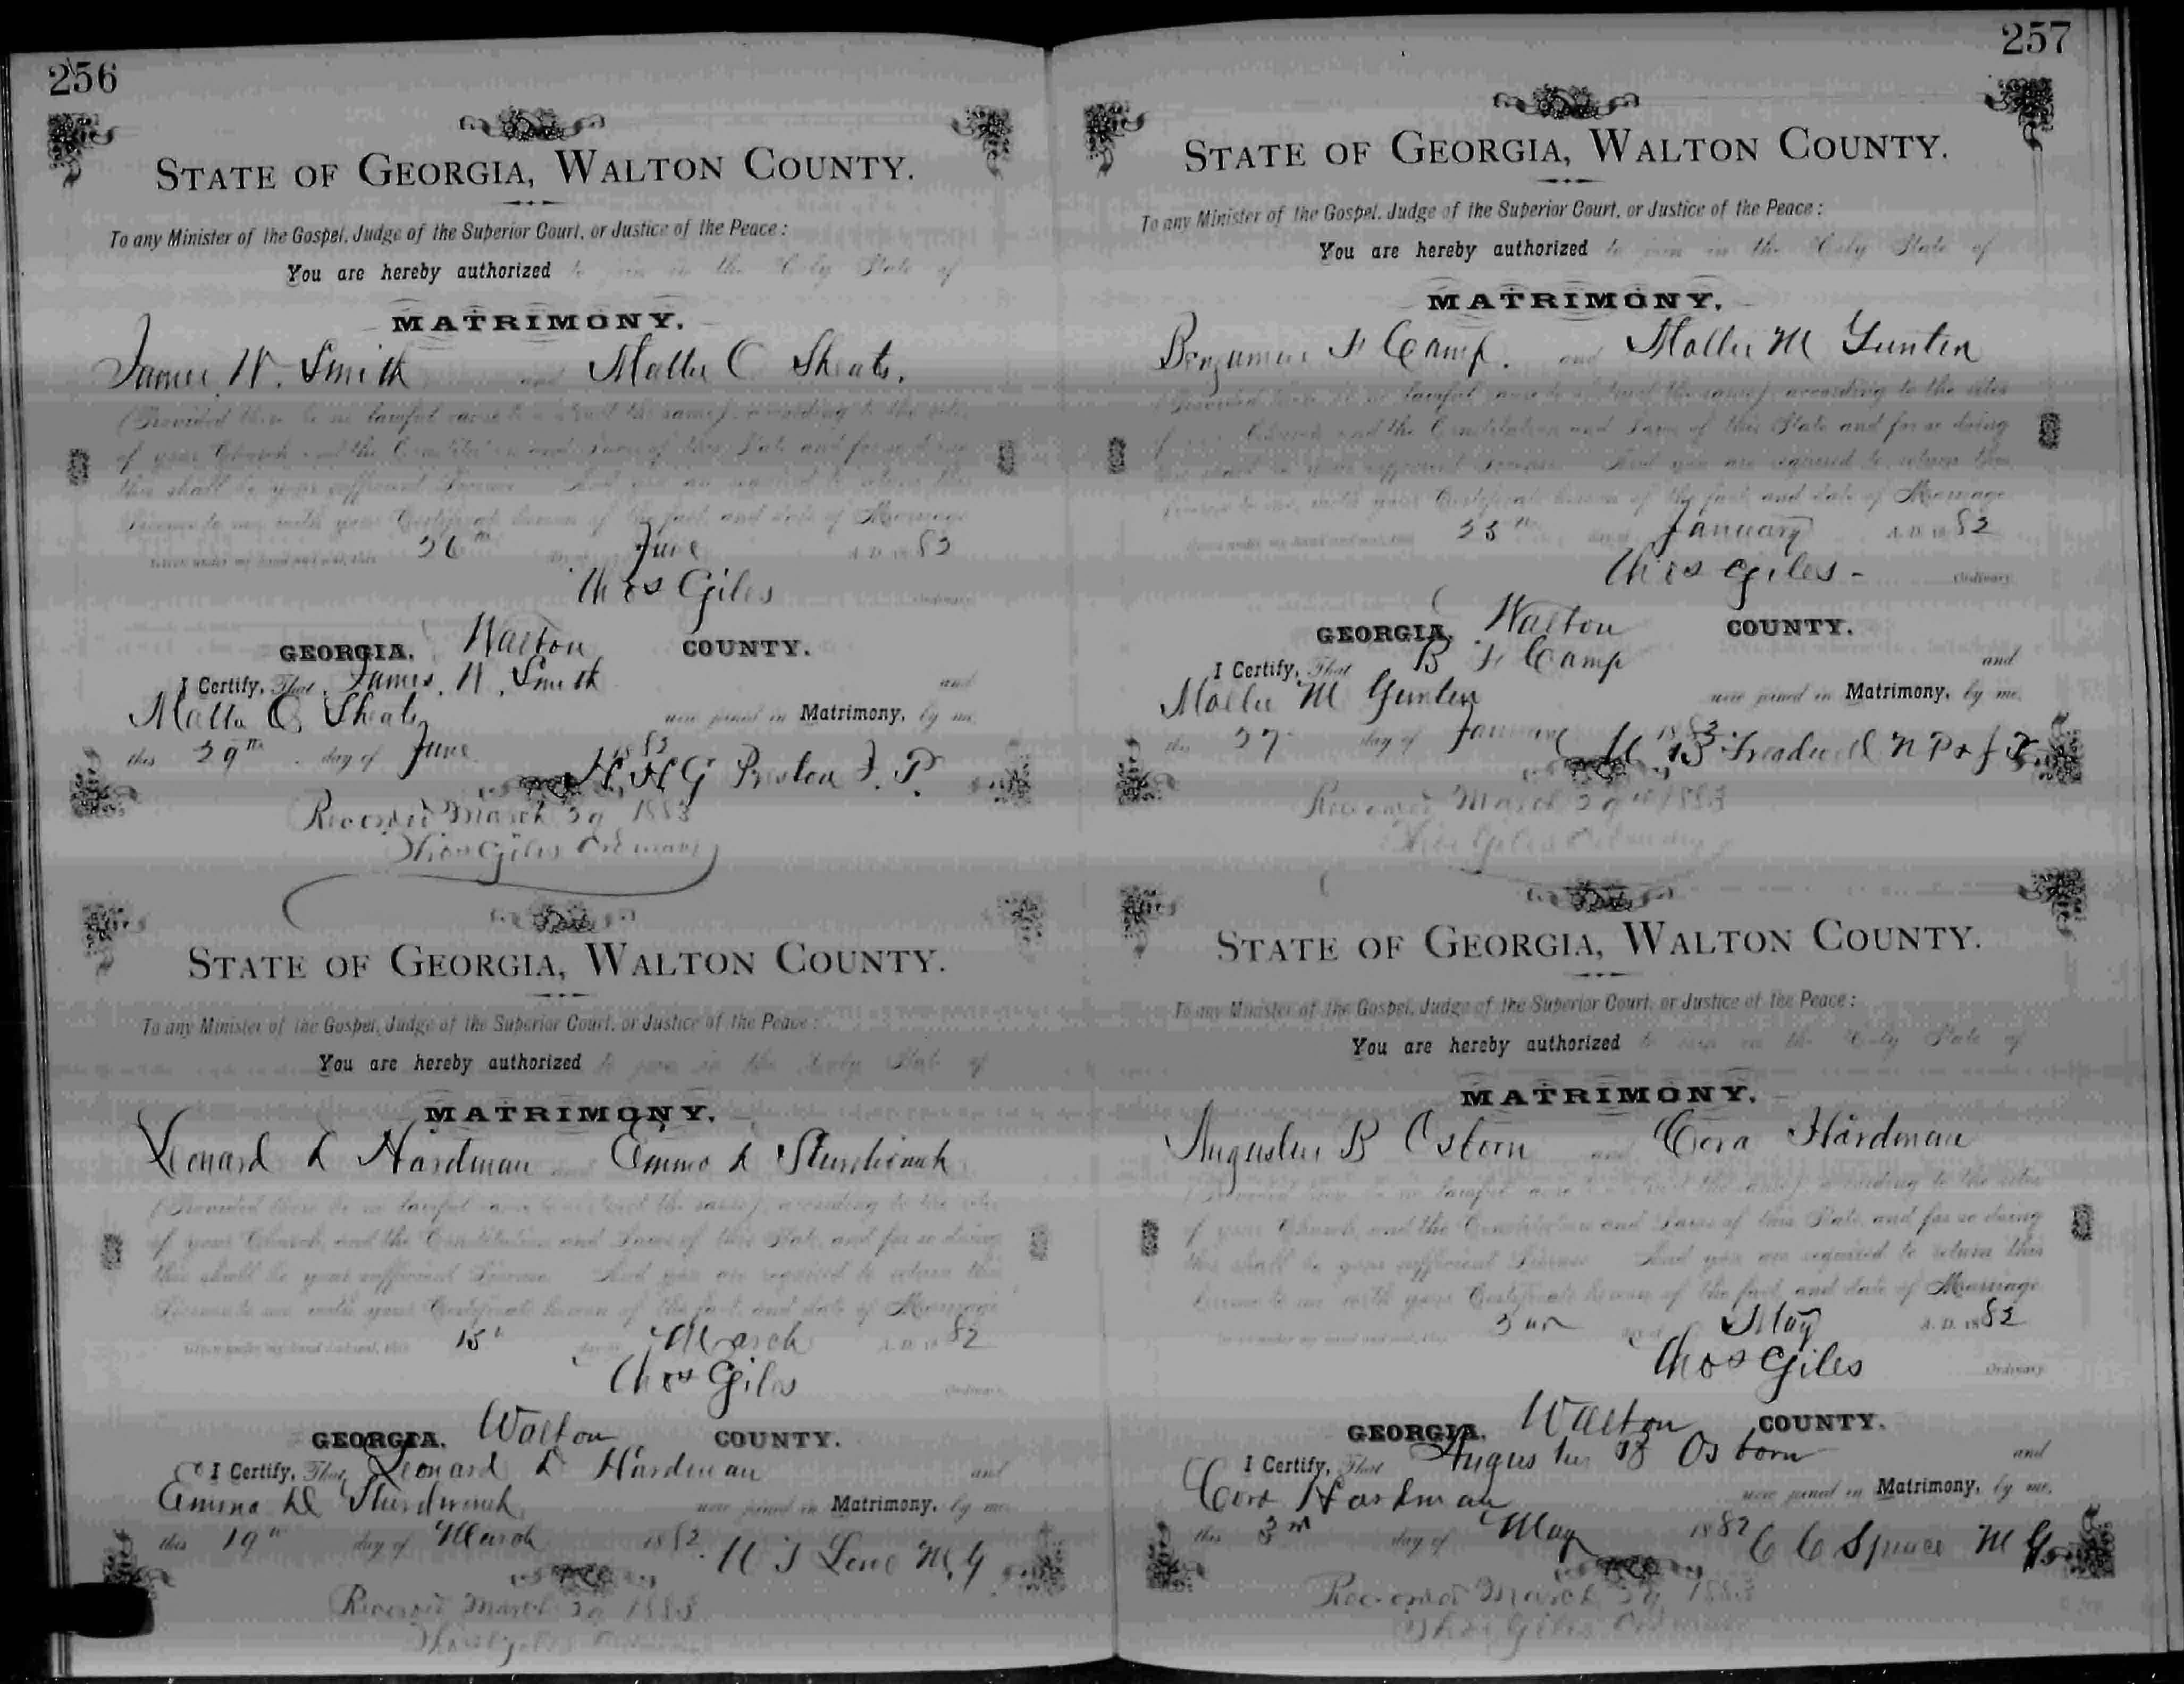 256
STATE OF GEORGIA, WALTON COUNTY.
To any Minister of the Gospel, Judge of the Superior Court, or Justice of the Peace:
You are hereby authorized to join in the Holy State of
MATRIMONY,
James W. Smith and C Sheats.
(Provided there be no lawful cause to obstruct the same), according to the rites
of your Church and the Constitution and Laws of this State and for so doing
this shall be your sufficient License And you are required to return this
License to me, with your Certificate hereon of the fact and date of Marriage
Given under my hand and seal, this 26th day of June A.D. 1882
Thos Giles Ordinary
GEORGIA, Walton COUNTY.
I Certify, That James. W. Smith and
C Sheats were joined in Matrimony, by me,
this 29th day of June 1882
H. H G J. P.
Recorded March 29 1883
Thos Giles Ordinary
STATE OF GEORGIA, WALTON COUNTY.
To any Minister of the Gospel, Judge of the Superior Court, or Justice of the Peace:
You are hereby authorized to join in the Holy State of
MATRIMONY,
Lenard L Hardman and Emma L
(Provided there be no lawful cause to obstruct the same), according to the rites
of your Church, and the Constitution and Laws of this State, and for so doing
this shall be your sufficient License And you are required to return this
License to me, with your Certificate hereon of the fact, and date of Marriage
Given under my hand and seal, this 15 day of March A.D. 1882
Thos Giles Ordinary
GEORGIA, Walton COUNTY.
I Certify, That Leonard L Hardman and
Emma were joined in Matrimony, by me,
this 19th day of March 1882. M. G
Recorded March 29 1883
Thos Giles Ordinary
257
STATE OF GEORGIA, WALTON COUNTY.
To any Minister of the Gospel, Judge of the Superior Court, or Justice of the Peace:
You are hereby authorized to join in the Holy State of
MATRIMONY,
Benjamin F Camp. and Mollie M Gunten
(Provided there be no lawful cause to obstruct the same), according to the rites
of your Church and the Constitution and Laws of this State and for so doing
this shall be your sufficient License And you are required to return this
License to me, with your Certificate hereon of the fact, and date of Marriage
Given under my hand and seal, this day of January A.D. 1882
Thos Giles - Ordinary
GEORGIA, Walton COUNTY.
I Certify, That B F Camp and
Mollie M Gunten were joined in Matrimony, by me,
this 27 day of January Treadwell N P & J P
Recorded March 29th 1883
Thos Giles Ordinary
STATE OF GEORGIA, WALTON COUNTY.
To any Minister of the Gospel, Judge of the Superior Court, or Justice of the Peace:
You are hereby authorized to join in the Holy State of
MATRIMONY,
Augustus B Osborn and Cora Hardman
(Provided there be no lawful cause to obstruct the same), according to the rites
of your Church, and the Constitution and Laws of this State, and for so doing
this shall be your sufficient License And you are required to return this
License to me with your Certificate hereon of the fact, and date of Marriage
Given under my hand and seal, this day of May A.D. 1882
Thos Giles Ordinary
GEORGIA, Walton COUNTY.
I Certify, That Augustus B Osborn and
Cora Hardman were joined in Matrimony, by me,
this 3rd day of May 1882 C C Spence M G
Recorded March 29 1883
Thos Giles Ordinary